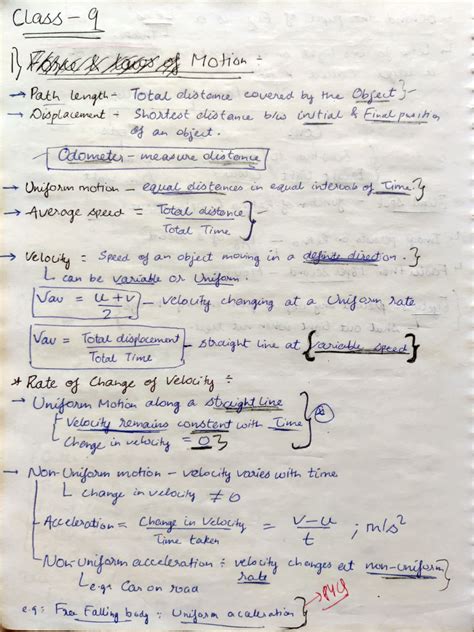 Class - 9
1) Force & Laws of Motion ÷
→ Path length - Total distance covered by the Object } -
→ Displacement - Shortest distance b/w initial & Final position
of an object.
Odometer - measure distance
→ Uniform motion - equal distances in equal intervals of Time. }
→ Average speed = Total distance / Total Time } -
→ Velocity = Speed of an object moving in a definite direction. }
L can be variable or Uniform.
Vav = u+v / 2 - velocity changing at a Uniform rate
Vav = Total displacement / Total Time - straight line at { variable speed }
* Rate of Change of Velocity ÷
→ Uniform Motion along a straight line
[ Velocity remains constant with Time
Change in velocity = 0 }
→ Non-Uniform motion - velocity varies with time
L change in velocity ≠ 0
- Acceleration = Change in Velocity / Time taken = v-u / t ; m/s²
Non Uniform acceleration ÷ velocity changes at non-uniform }
rate
L e.g: Car on road
e.g: Free Falling body ÷ Uniform acceleration } → PYQ